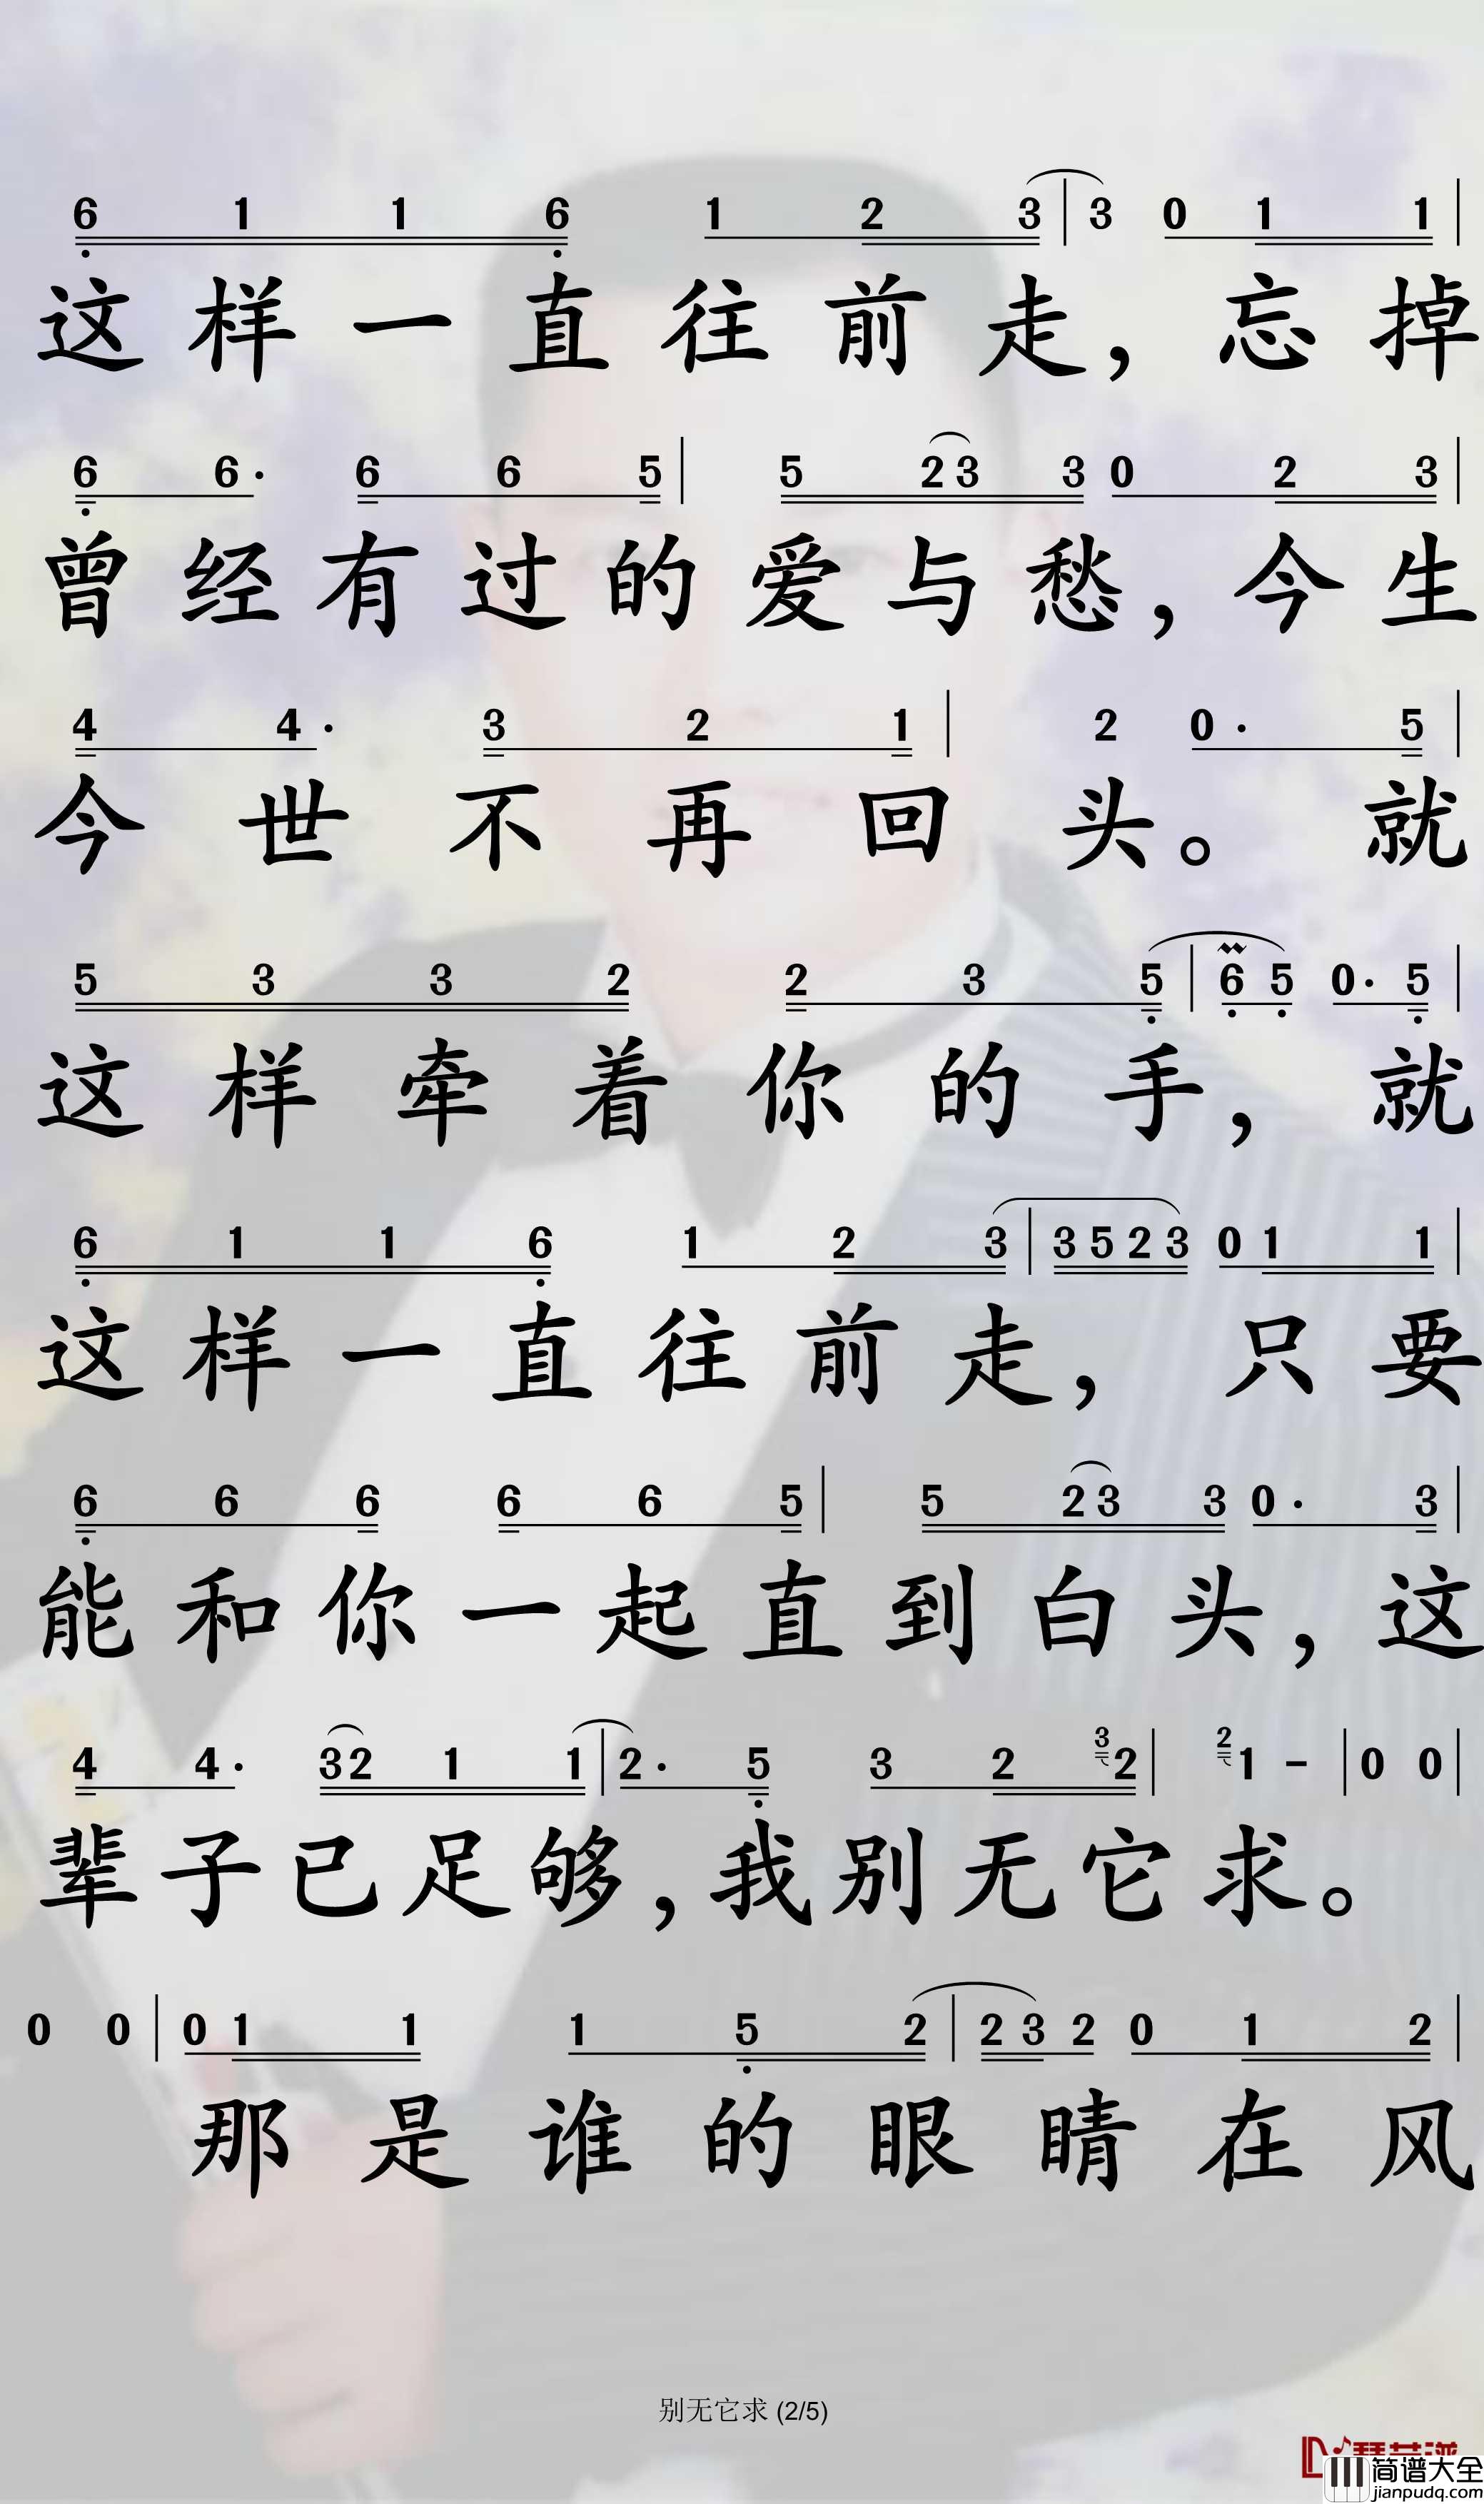 6 1 1 6 1 2 3 | 3 0 1 1 |
这样一直往前走，忘掉
6 6· 6 6 5 | 5 2 3 3 0 2 3 |
曾经有过的爱与愁，今生
4 4· 3 2 1 | 2 0· 5 |
今世不再回头。就
5 3 3 2 2 3 5 | 6 5 0· 5 |
这样牵着你的手，就
6 1 1 6 1 2 3 | 3 5 2 3 0 1 1 |
这样一直往前走，只要
6 6 6 6 6 5 | 5 2 3 3 0· 3 |
能和你一起直到白头，这
4 4· 3 2 1 1 | 2· 5 3 2 3 2 | 2 1 - | 0 0 |
辈子已足够，我别无它求。
0 0 | 0 1 1 1 5 2 | 2 3 2 0 1 2 |
那是谁的眼睛在风
别无它求 (2/5)
简谱大全
jianpudq.com